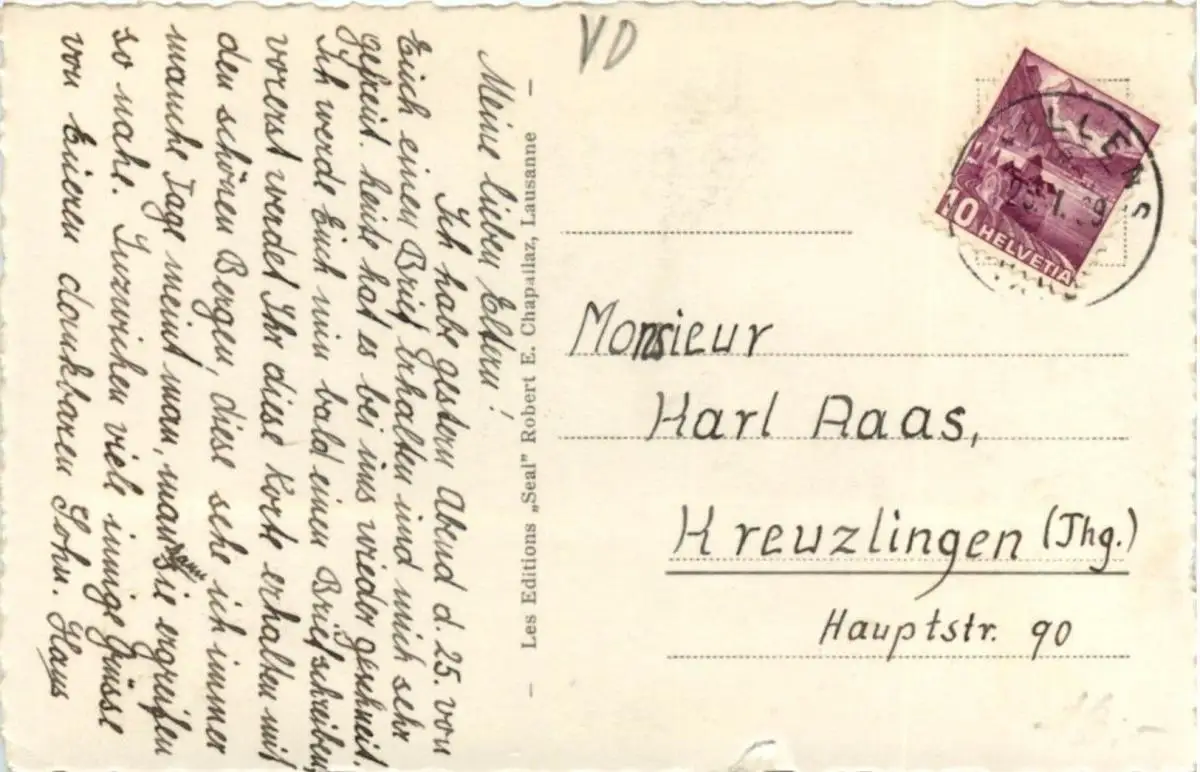 VD
Meine lieben Eltern!
Ich habe gestern Abend d. 25. von
Euch einen Brief erhalten und mich sehr
gefreut. heute hat es bei uns wieder geschneit.
Ich werde Euch nun bald einen Brief schreiben,
vorerst werdet Ihr diese Korte erhalten mit
den schönen Bergen, diese sehe ich immer
manche Tage meint man, man kann sie ergreifen
so nahe. Inzwischen viele innige Grüsse
von Eueren dankbaren Sohn. Hans
- Les Editions „Seal" Robert E. Chapallaz, Lausanne -
LLENS
10 HELVETIA
Monsieur
Karl Raas,
Kreuzlingen (Thg.)
Hauptstr. 90